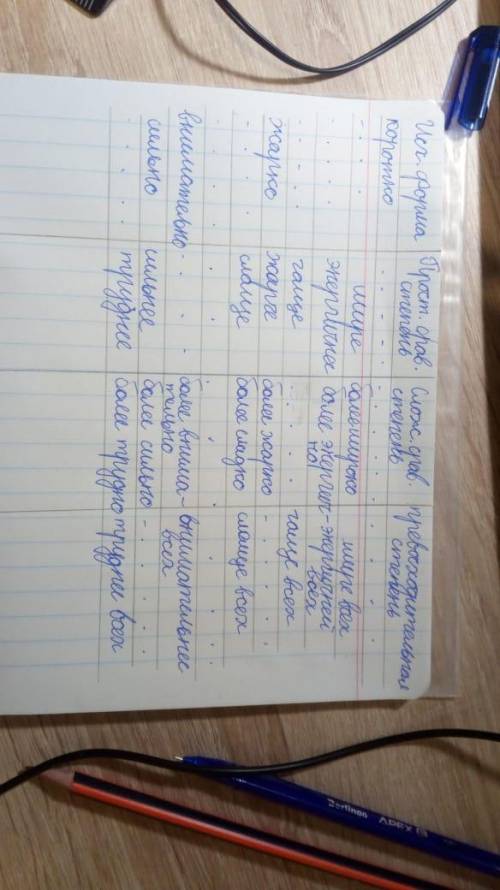 Исх. форма Прост. срав. степень Слож. срав. степень превосходительная степень
коротко . . . . . . . . . . . .
. . . . шире более широко шире всех
. . . . энергичнее более энергично энергичней всех
. . . . чаще . . . . чаще всех
жарко жарче более жарко . . . .
. . . . слаще более сладко слаще всех
. . . . . . . .
внимательно . . . . более внима-тельно внимательнее всех
сильно сильнее более сильно . . . .
. . . . труднее более трудно трудней всех
Berlingo